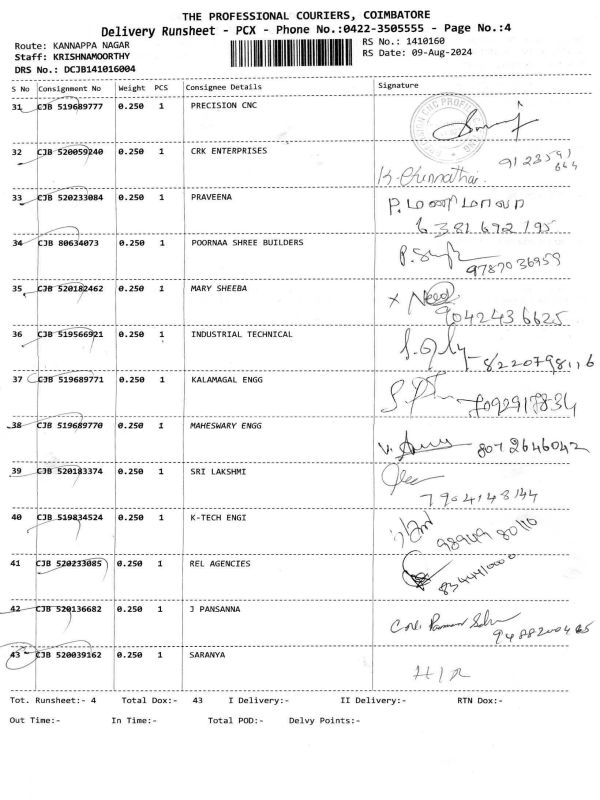 THE PROFESSIONAL COURIERS, COIMBATORE
Delivery Runsheet - PCX - Phone No.:0422-3505555 - Page No.:4
Route: KANNAPPA NAGAR
Staff: KRISHNAMOORTHY
DRS No.: DCJB141016004
RS No.: 1410160
RS Date: 09-Aug-2024
S No Consignment No Weight PCS Consignee Details Signature
31 CJB 519689777 0.250 1 PRECISION CNC
32 CJB 520059240 0.250 1 CRK ENTERPRISES K. Chinnathai.
33 CJB 520233084 0.250 1 PRAVEENA P. மணிமாலா
6381692195
34 CJB 80634073 0.250 1 POORNAA SHREE BUILDERS 9787036959
35 CJB 520182462 0.250 1 MARY SHEEBA x
9042436625
36 CJB 519566921 0.250 1 INDUSTRIAL TECHNICAL 8220798116
37 CJB 519689771 0.250 1 KALAMAGAL ENGG 7092917834
38 CJB 519689770 0.250 1 MAHESWARY ENGG 8072646042
39 CJB 520183374 0.250 1 SRI LAKSHMI
7904143144
40 CJB 519834524 0.250 1 K-TECH ENGI
41 CJB 520233085 0.250 1 REL AGENCIES
42 CJB 520136682 0.250 1 J PANSANNA
43 CJB 520039162 0.250 1 SARANYA
Tot. Runsheet:- 4 Total Dox:- 43 I Delivery:- II Delivery:- RTN Dox:-
Out Time:- In Time:- Total POD:- Delvy Points:-